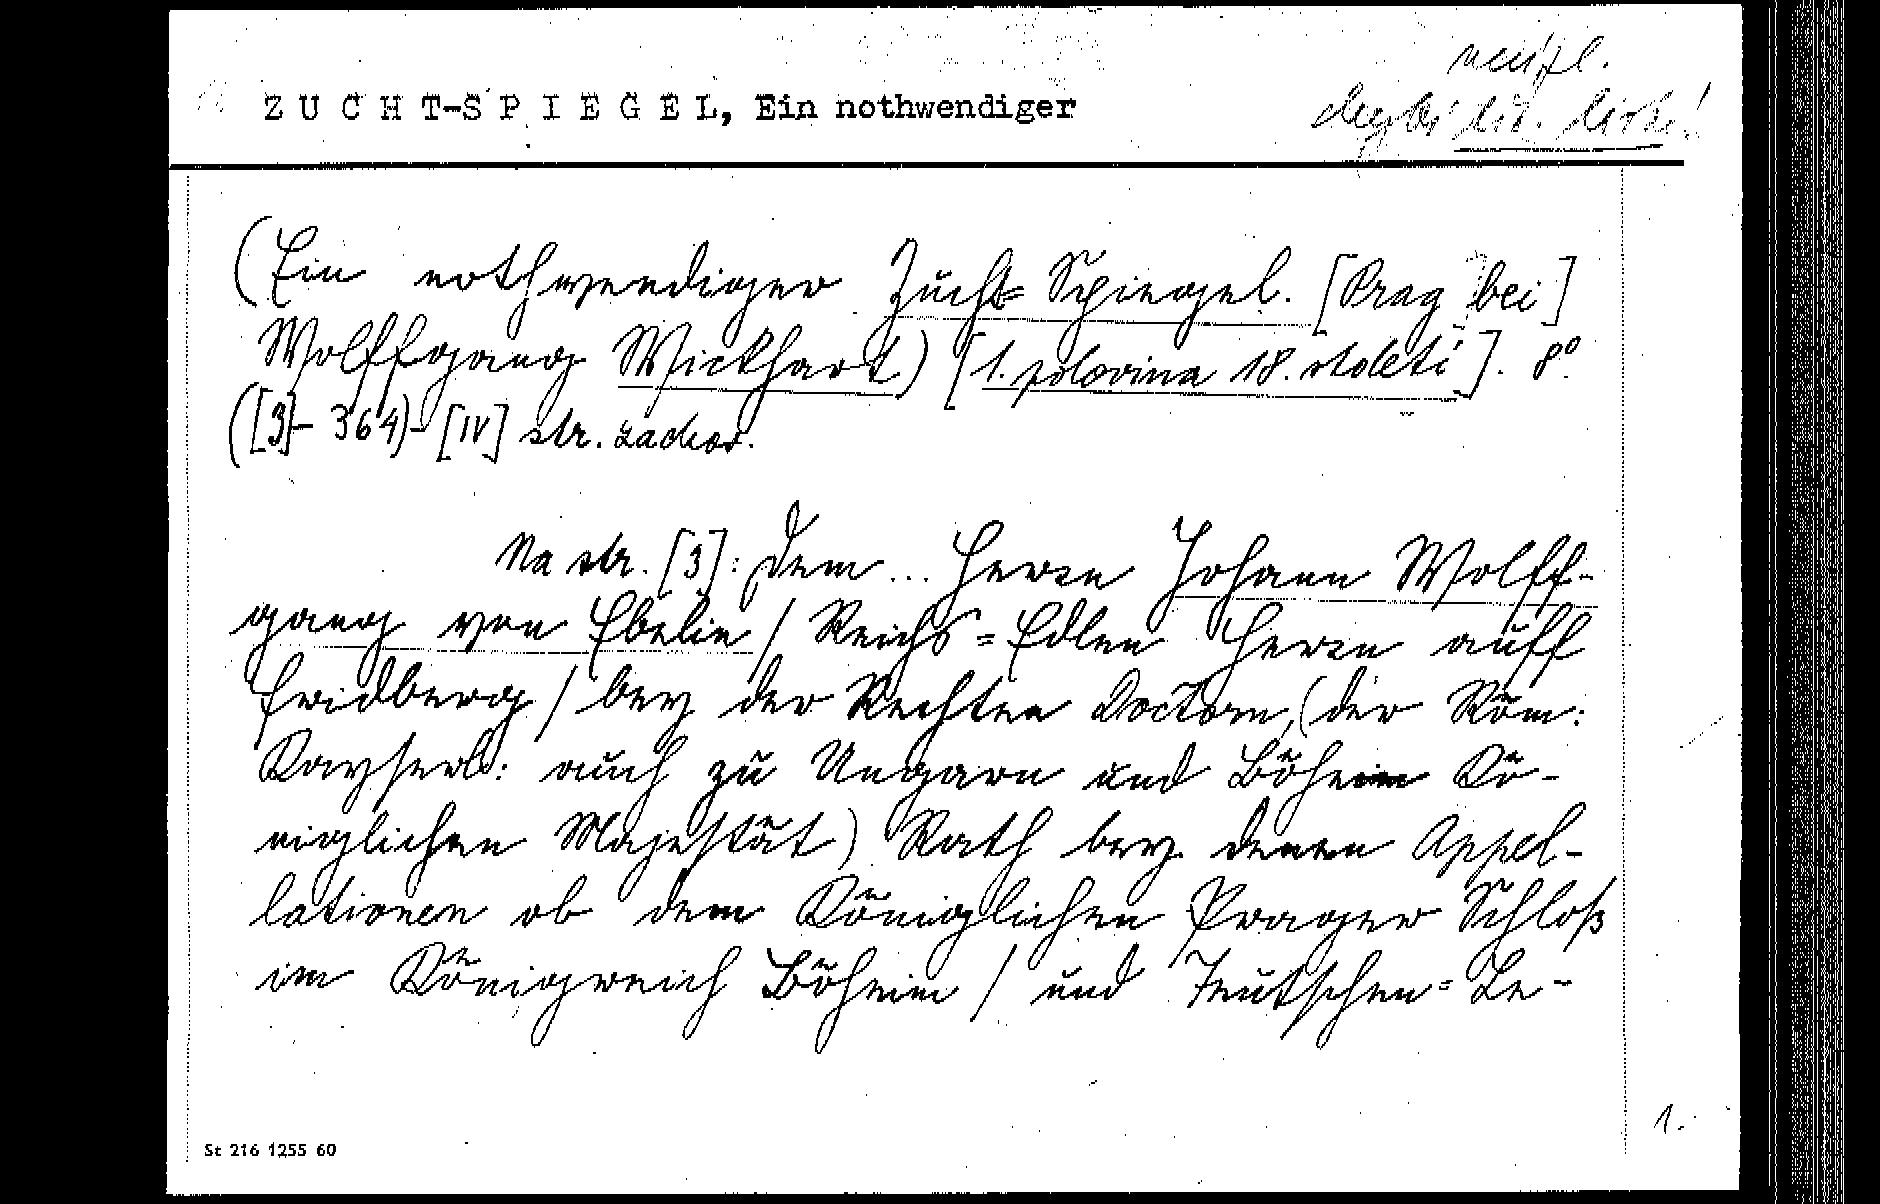 neúpl.
Z U C H T-S P I E G E L, Ein nothwendiger
chybí tit. list!
(Ein nothwendiger Zucht= Spiegel. [Prag bei]
Wolffgang Wickhart.) [1. polovina 18. století]. 8°
([3]- 364)- [IV] str. zachov.
Na str. [3]: Dem ... Herrn Johann Wolff-
gang von Ebelin / Reichs = Edlen Herrn auff
Fridberg / bey der Rechten Doctorn, (der Röm:
Kayserl: auch zu Ungarn und Böheim Kö-
niglichen Majestät) Rath bey denen Appel-
lationen ob dem Königlichen Prager Schloß
im Königreich Böheim / und Teutschen= Le-
1.
St 216 1255 60